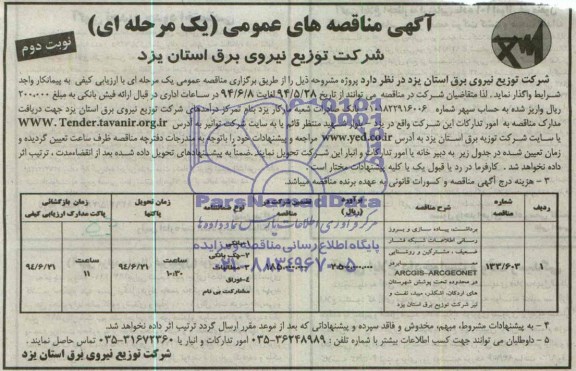 آگهی مناقصه های عمومی (یک مرحله ای)
نوبت دوم
شرکت توزیع نیروی برق استان یزد
شرکت توزیع نیروی برق استان یزد در نظر دارد پروژه مشروحه ذیل را از طریق برگزاری مناقصه عمومی یک مرحله ای با ارزیابی کیفی به پیمانکار واجد
شرایط واگذار نماید. لذا متقاضیان شرکت در مناقصه می توانند از تاریخ ۹۴/۵/۲۸ لغایت ۹۴/۶/۸ در ساعات اداری در قبال ارائه فیش بانکی به مبلغ ۲۰۰,۰۰۰
ریال واریز شده به حساب سپهر شماره بانک صادرات شعبه بنام تمرکز درآمدهای شرکت توزیع نیروی برق استان یزد جهت دریافت
مدارک مناقصه به امور تدارکات این شرکت واقع در یزد به سایت شرکت توانیر به آدرس WWW.Tender.tavanir.org.ir
یا سایت شرکت توزیع برق استان یزد به آدرس www.yed.co.ir مراجعه و پیشنهادات خود را باتوجه به مندرجات دفترچه مناقصه ظرف ساعت تعیین گردیده و
زمان تعیین شده در جدول زیر به دبیر خانه یا امور تدارکات و انبار این شرکت تحویل نمایند. ضمناً به پیشنهادهای تحویل داده شده بعد از انقضاءمدت، ترتیب اثر
داده نخواهد شد. کارفرما در رد یا قبول یک یا کلیه پیشنهادات مختار است
۳ - هزینه درج آگهی مناقصه و کسورات قانونی به عهده برنده مناقصه میباشد.
ردیف شماره مناقصه شرح مناقصه برآورد (ریال) مناقصه زمان تحویل پاکتها زمان بازگشائی پاکت مدارک ارزیابی کیفی
۱ ۱۳۳/۶۰۳ برداشت، پیاده سازی و بروز رسانی اطلاعات شبکه فشار ضعیف، مشترکین و روشنایی ARCGIS-ARCGEONET در محدوده تحت پوشش شهرستان های اردکان، اشکذر، میبد، تفت و شرکت توزیع برق استان یزد
۲-چک بانکی ۴-اوراق مشارکت بی نام
ساعت ۱۰:۳۰ ۹۴/۶/۲۱ ساعت ۱۱ ۹۴/۶/۲۱
۴ - به پیشنهادات مشروط، مبهم، مخدوش و فاقد سپرده و پیشنهاداتی که بعد از موعد مقرر ارسال گردد ترتیب اثر داده نخواهد شد.
۵ - داوطلبان می توانند جهت کسب اطلاعات بیشتر با شماره تلفن : ۰۳۵-۳۶۲۴۸۹۸۹ امور تدارکات و انبار یا ۰۳۵-۳۱۶۷۲۳۶۰ تماس حاصل نمایند.
شرکت توزیع نیروی برق استان یزد
ParsNamadData
پایگاه اطلاع رسانی مناقصه و مزایده
۰۲۱-۸۸۳۴۹۶۷۰-۵